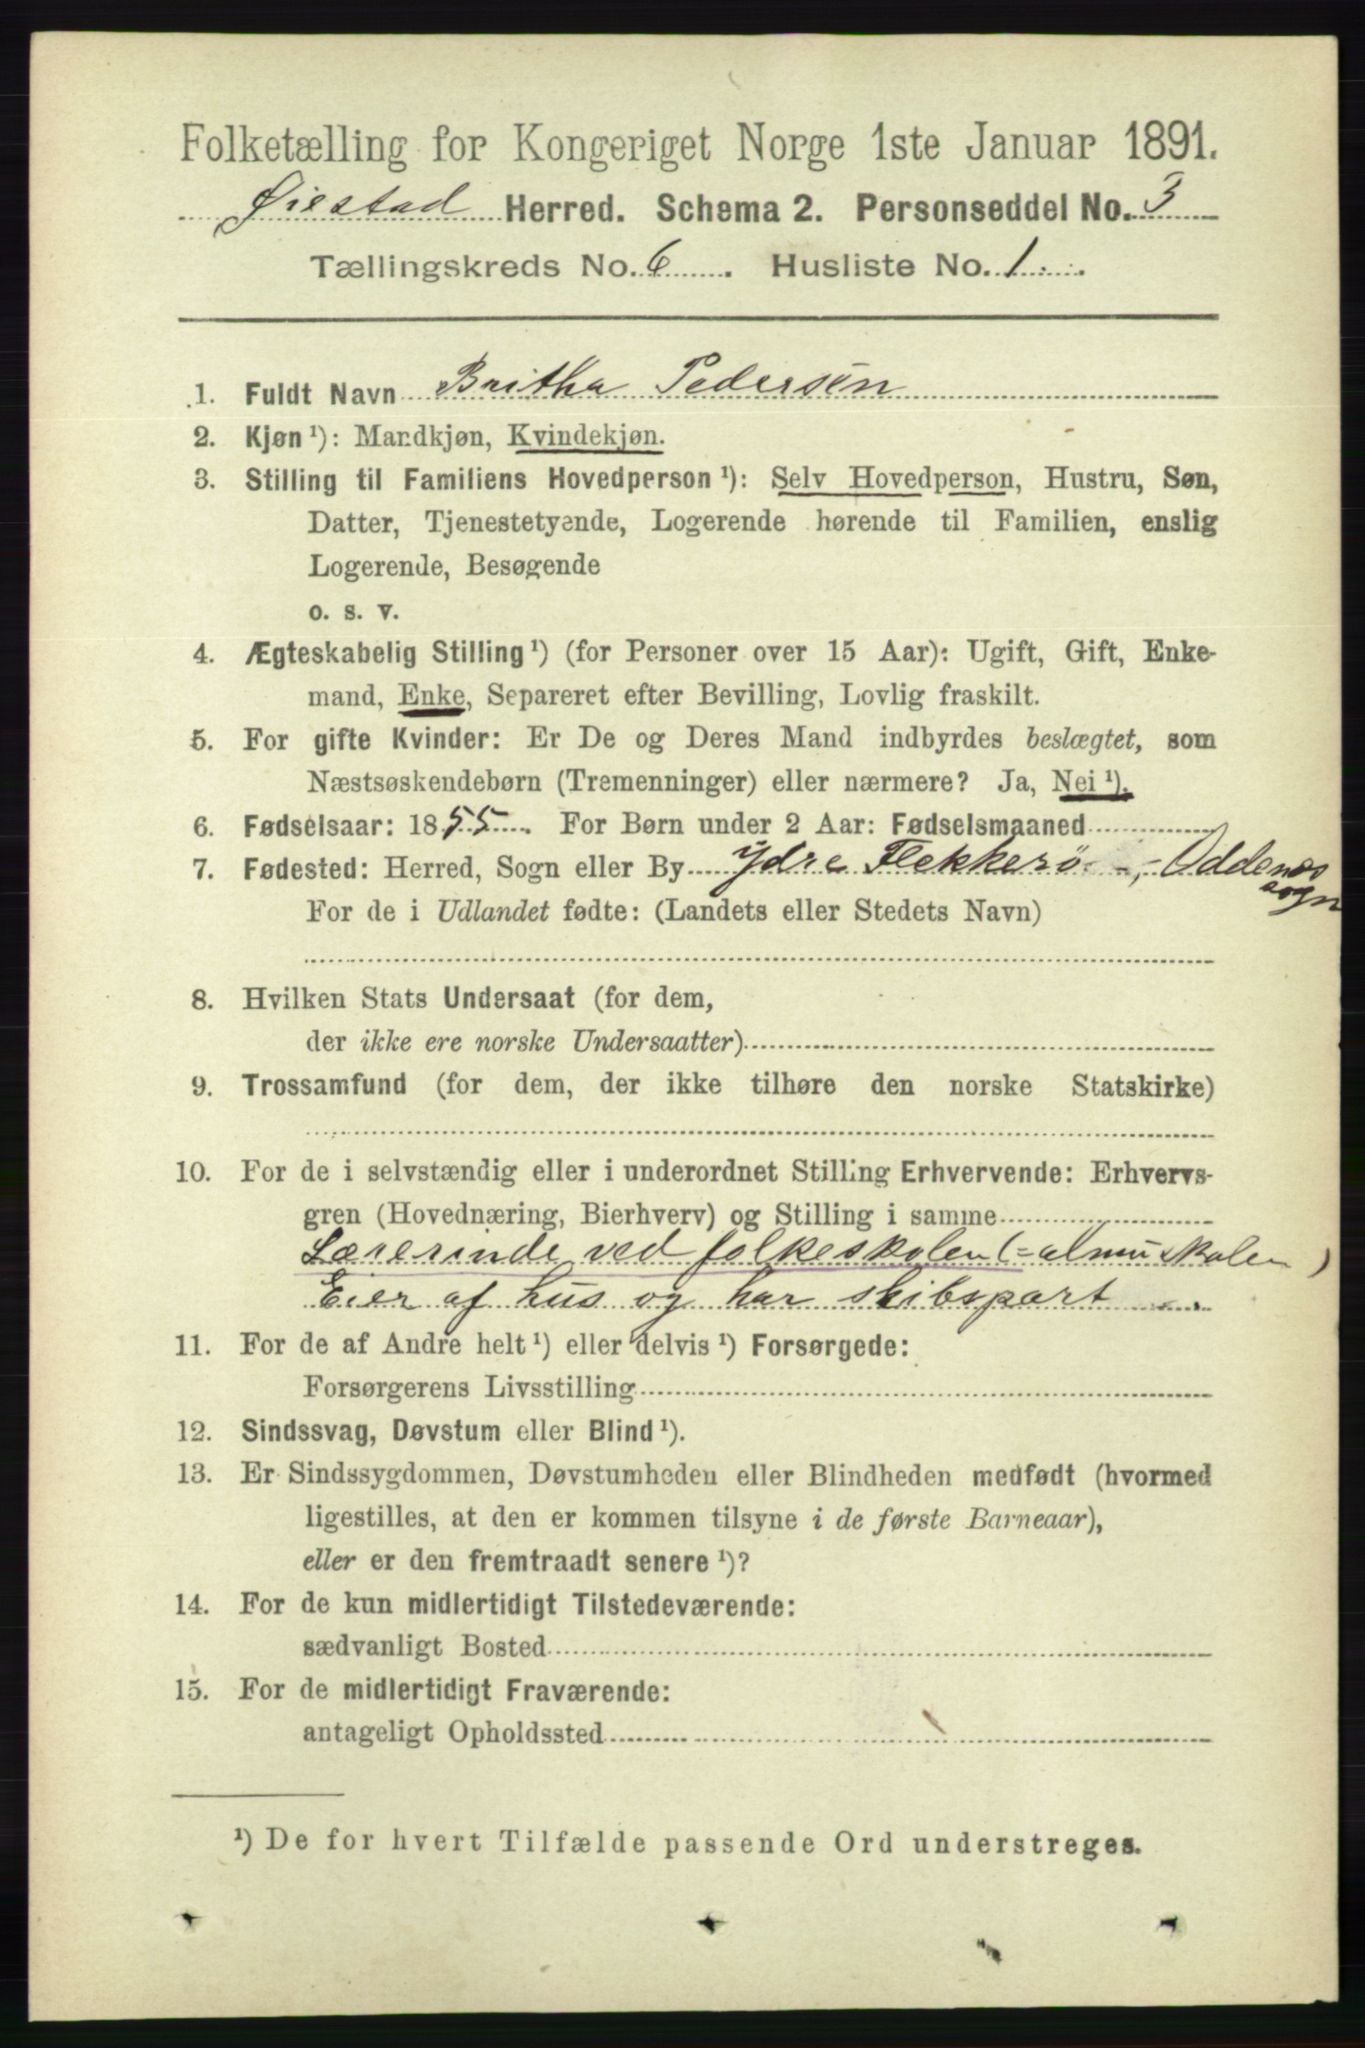 Folketælling for Kongeriget Norge 1ste Januar 1891.
Øiestad Herred. Schema 2. Personseddel No. 3
Tællingskreds No. 6. Husliste No. 1.
1. Fuldt Navn Britha Pedersen
2. Kjøn ¹): Mandkjøn, Kvindekjøn.
3. Stilling til Familiens Hovedperson ¹): Selv Hovedperson, Hustru, Søn,
Datter, Tjenestetyende, Logerende hørende til Familien, enslig
Logerende, Besøgende
o. s. v.
4. Ægteskabelig Stilling ¹) (for Personer over 15 Aar): Ugift, Gift, Enke-
mand, Enke, Separeret efter Bevilling, Lovlig fraskilt.
5. For gifte Kvinder: Er De og Deres Mand indbyrdes beslægtet, som
Næstsøskendebørn (Tremenninger) eller nærmere? Ja, Nei ¹).
6. Fødselsaar: 1855. For Børn under 2 Aar: Fødselsmaaned
7. Fødested: Herred, Sogn eller By Ydre Flekkerö -, Oddenes
sogn
For de i Udlandet fødte: (Landets eller Stedets Navn)
8. Hvilken Stats Undersaat (for dem,
der ikke ere norske Undersaatter)
9. Trossamfund (for dem, der ikke tilhøre den norske Statskirke)
10. For de i selvstændig eller i underordnet Stilling Erhvervende: Erhvervs-
gren (Hovednæring, Bierhverv) og Stilling i samme
Lærerinde ved folkeskolen (=almuskolen)
Eier af hus og har skibspart
11. For de af Andre helt ¹) eller delvis ¹) Forsørgede:
Forsørgerens Livsstilling
12. Sindssvag, Døvstum eller Blind ¹).
13. Er Sindssygdommen, Døvstumheden eller Blindheden medfødt (hvormed
ligestilles, at den er kommen tilsyne i de første Barneaar),
eller er den fremtraadt senere ¹)?
14. For de kun midlertidigt Tilstedeværende:
sædvanligt Bosted
15. For de midlertidigt Fraværende:
antageligt Opholdssted
¹) De for hvert Tilfælde passende Ord understreges.